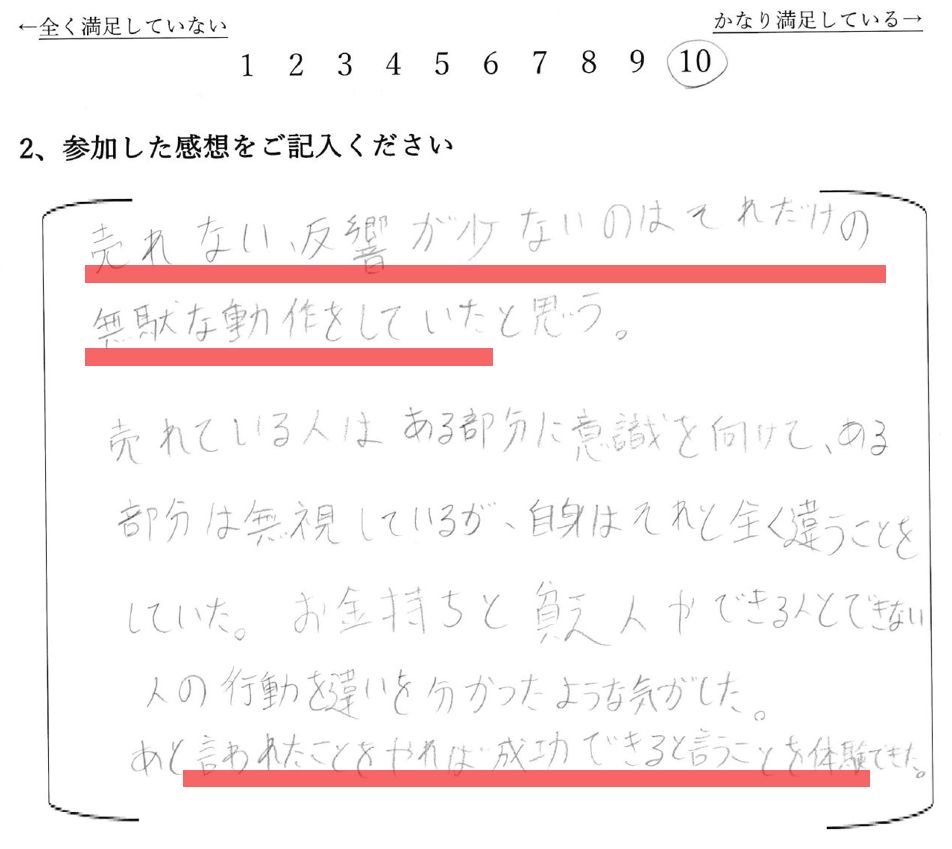 ←全く満足していない かなり満足している→
1 2 3 4 5 6 7 8 9 10
2、参加した感想をご記入ください
売れない、反響が少ないのはそれだけの
無駄な動作をしていたと思う。
売れている人はある部分に意識を向けて、ある
部分は無視しているが、自身はそれと全く違うことを
していた。お金持ちと貧乏人やできる人とできない
人の行動を違いを分かったような気がした。
あと言われたことをやれば成功できると言うことを体験できた。